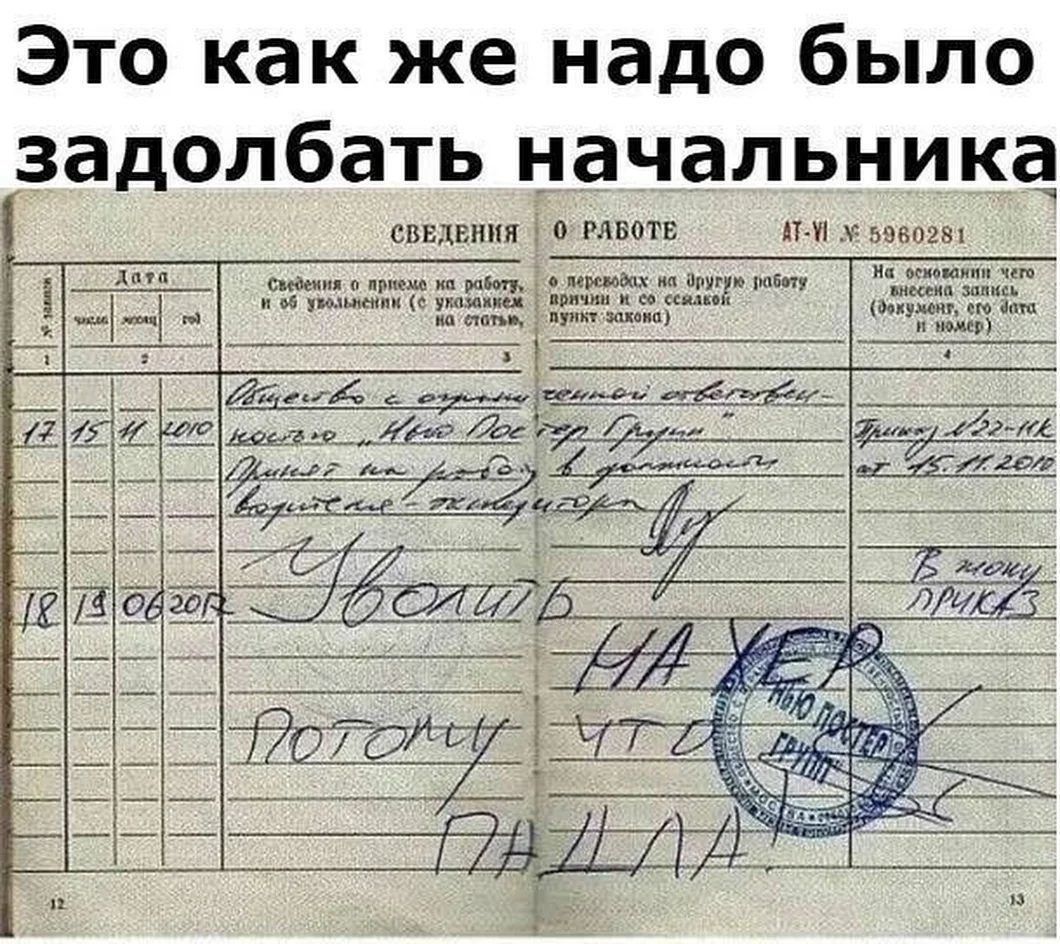 Это как же надо было
задолбать начальника
СВЕДЕНИЯ О РАБОТЕ АТ-VI № 5960281
№ записи
Дата
число месяц год
Сведения о приеме на работу, о переводах на другую работу
и об увольнении (с указанием причин и со ссылкой
на статью, пункт закона)
На основании чего
внесена запись
(документ, его дата
и номер)
1 2 3 4
Общество с ограниченной ответствен-
17 15 11 2010 ностью „Нью Постер Групп" Приказ №22-НК
Принят на работу в должности от 15.11.2010
водителя-экспедитора
В жопу
18 19 06 201 Уволить ПРИКАЗ
НА ХЕР
ПОТОМУ ЧТО
НЬЮ ПОСТЕР
ГРУПП
МОСКВА
ПАДЛА!
12 13